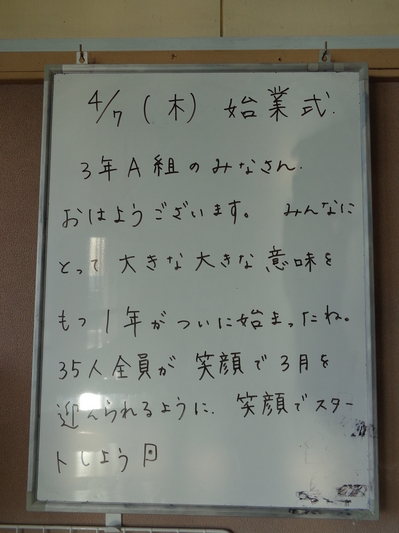 4/7(木) 始業式.
3年A組のみなさん.
おはようございます。 みんなに
とって 大きな大きな意味を
もつ1年がついに始まったね。
35人全員が 笑顔で3月を
迎えられるように. 笑顔でスター
トしよう